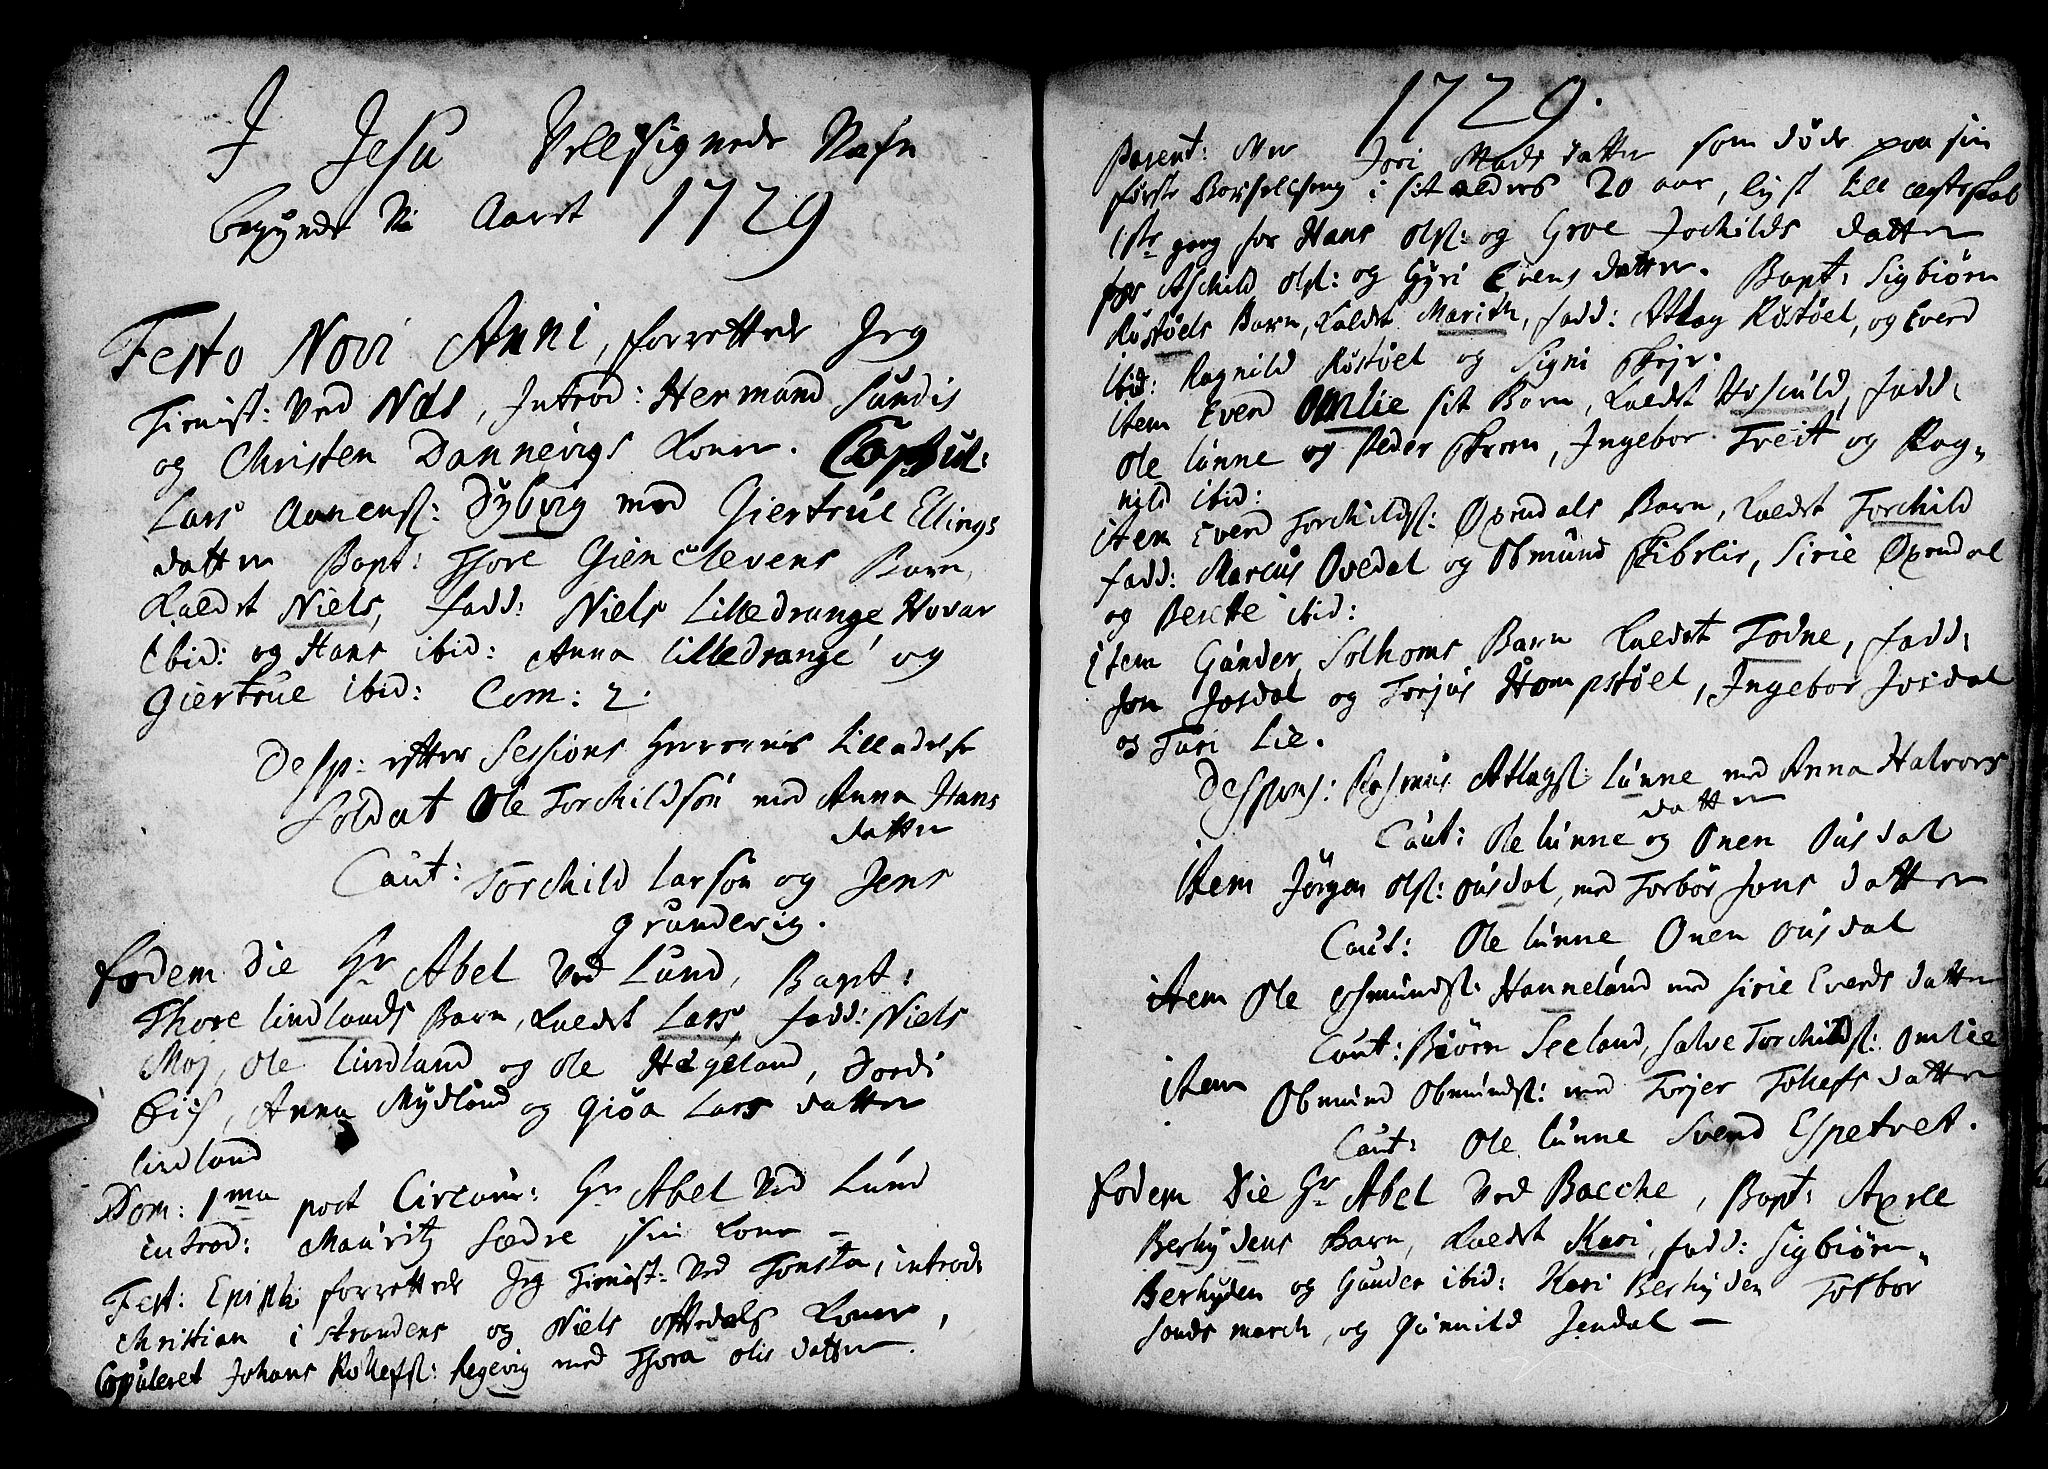 I Jesu Velsignede Nafn
begynde Vi Aaret 1729
Festo Novi Anni, forrettede Jeg
Tienist: Ved Næs, Introd: Hermand Sundis
og Christen Dannevigs Koner. Copul:
Lars Aanensß: Dybvig med Giertrue Ellings
datter Bapt: Thore Gienclevens Barn
Kaldet Niels, fadd: Niels Lilledrange Hovar
ibid: og Hans ibid: Anna Lilledrange og
Giertrue ibid: Com: 2.
Desp: efter Sessions Herrernis tilladelse
Soldat Ole Torchildsøn med Anna Hans
datter
Caut: Torchild Larsøn og Jens
grundevig.
Eodem Die Hr Abel Ved Lund, Bapt:
Thore lindlands Barn, Kaldet Lars, fadd: Niels
Moj, Ole Lindland og Ole Hegeland, Jordi
Anna Mydland og Giøa Lars datter
lindland
Dom: 1ma post Circum: Hr Abel Ved Lund
introd: Mauritz Sædre sin Kone —
Fest: Epiph: forrettede Jeg Tienist: Ved Tonsta, introd:
Christian i Strandens og Niels Koner,
Copuleret Johans Rollefsß: Regevig med Thora Olis datter.
1729.
Parent: over Jori Mads datter som døde paa sin
første Barselseng i sit alders 20 aar, lyst till ægteskab
1ste gang for Hans Olß: og Groe Jochilds datter
for Aschild Olß: og Gyri Evens datter. Bapt: Sigbiørn
Røstøels Barn, Kaldet Marith, fadd: Atlag Røstøel, og Everd
ibid: Ragnild Røstøel og Signi Skeje.
item Everd Omlie sit Barn, Kaldet Aschild, fadd:
Ole lunne og Peder Skrom, Ingebor Treit og Rag-
nild ibid:
item Everd Torchildsß: Øxendals Barn, Kaldet Torchild
fadd: Marcus Ovedal og Obmund Skibelie, Sirie Øxendal
og Berette ibid:
item Gunder Solhoms Barn Kaldet Todne, fadd:
Jon Josdal og Torjus Hompstøel, Ingebor Josdal
og Turi Lie.
Despons: Rasmus Atlagß: lunne med Anna Halvors
datter
Caut: Ole lunne og Onen Ousdal
item Jørgen Olß: Ousdal, med Torbor Jons datter
Caut: Ole lunne Onen Ousdal
item Ole Asmundsß: Hanneland med Sirie Everds datter
Caut: Biørn Seeland, Salve Torchildsß: Omlie
item Obmund Obmundsß: med Torjer Tollefs datter
Caut: Ole lunne Svend Espetvet.
Eodem Die Hr Abel Ved Bacche, Bapt: Axell
Berhydens Barn, Kaldet Kari, fadd: Sigbiørn
Berhyden og Gunder ibid: Kari Berhyden Torbor
Sandsmarch, og Gunnild Jendal —